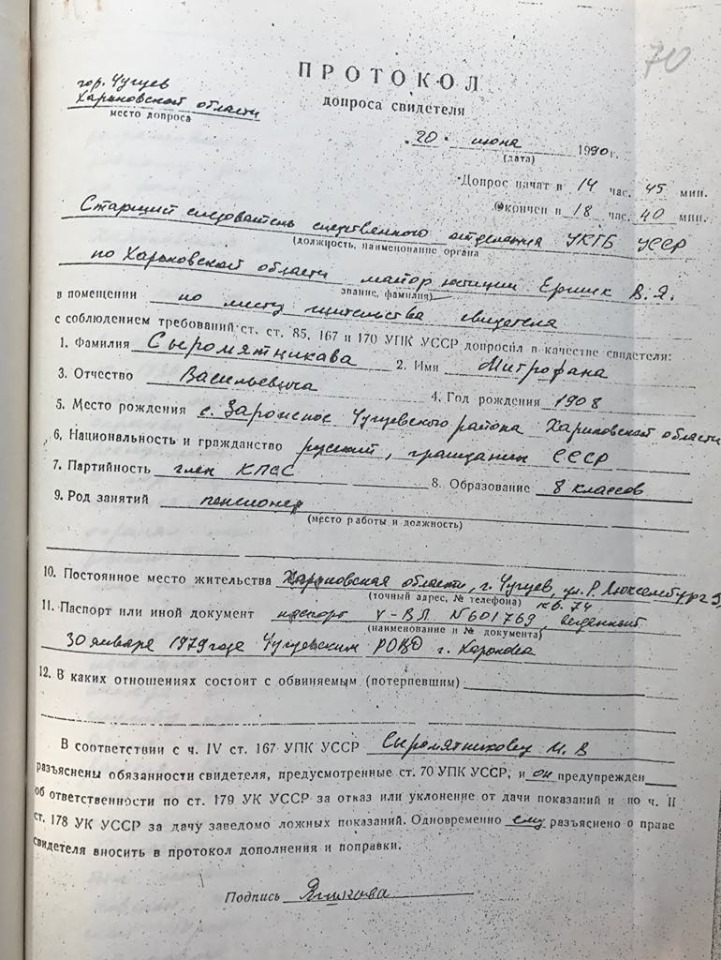 70
ПРОТОКОЛ
гор. Чугуев
Харьковской области
место допроса
допроса свидетеля
"20" июня 1990 г.
(дата)
Допрос начат в 14 час. 45 мин.
Окончен в 18 час. 40 мин.
Старший следователь следственного отделения УКГБ УССР
(должность, наименование органа
по Харьковской области майор юстиции В. Я.
звание, фамилия)
в помещении по месту жительства свидетеля
с соблюдением требований ст. ст. 85, 167 и 170 УПК УССР допросил в качестве свидетеля:
1. Фамилия Сыромятникова 2. Имя Митрофана
3. Отчество Васильевича 4. Год рождения 1908
5. Место рождения с. Зарожное Чугуевского района Харьковской области
6. Национальность и гражданство русский, гражданин СССР
7. Партийность член КПСС 8. Образование 8 классов
9. Род занятий пенсионер
(место работы и должность)
10. Постоянное место жительства Харьковская области, г. Чугуев, ул. Р. Люксембург 9,
(точный адрес, № телефона) кв. 74
11. Паспорт или иной документ паспорт V-ВЛ N601769, выданный
(наименование и № документа)
30 января 1979 года Чугуевским РОВД г. Харькова
12. В каких отношениях состоит с обвиняемым (потерпевшим)
В соответствии с ч. IV ст. 167 УПК УССР Сыромятникову М. В
разъяснены обязанности свидетеля, предусмотренные ст. 70 УПК УССР, и он предупрежден
об ответственности по ст. 179 УК УССР за отказ или уклонение от дачи показаний и по ч. II
ст. 178 УК УССР за дачу заведомо ложных показаний. Одновременно ему разъяснено о праве
свидетеля вносить в протокол дополнения и поправки.
Подпись